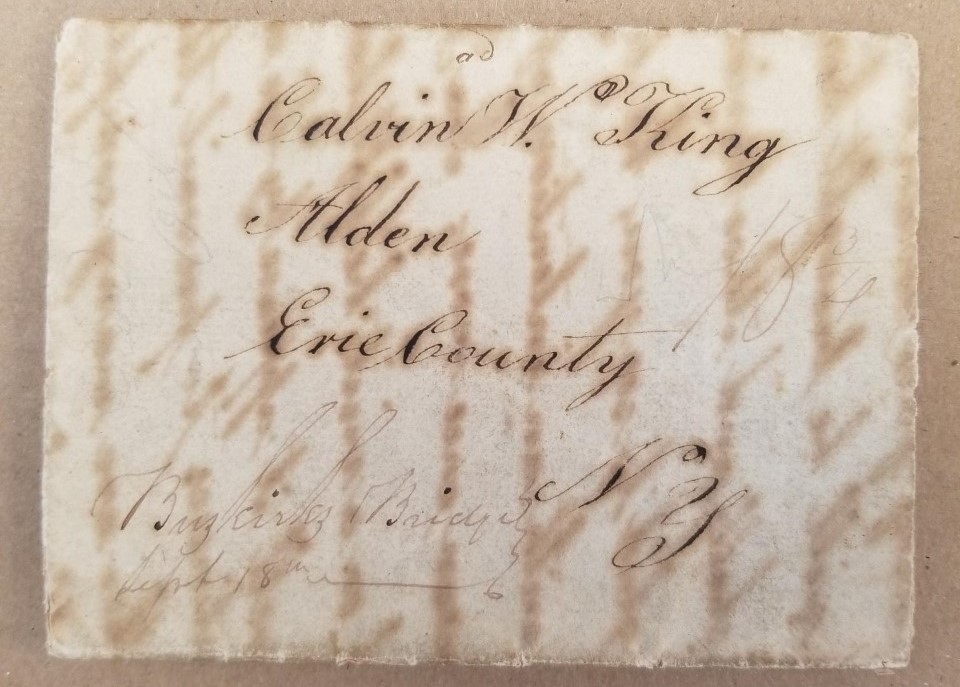 Calvin W. King
Alden
Erie County
N Y
18 3/4
Buskirks Bridge
Sept. 18